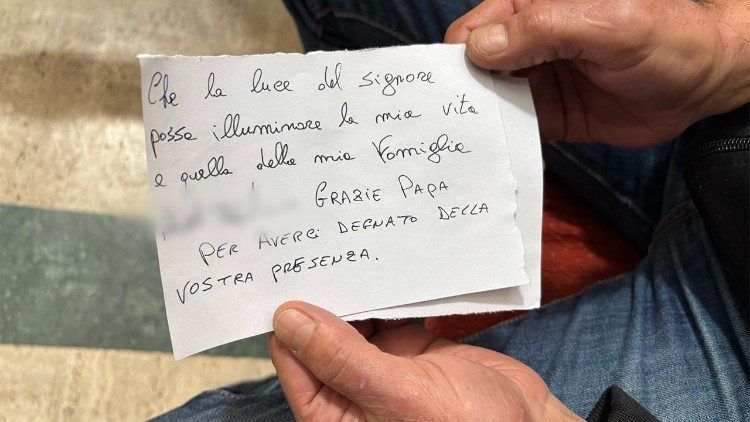 Che la luce del Signore
possa illuminare la mia vita
e quella della mia Famiglia
GRAZIE PAPA
PER AVERCI DEGNATO DELLA
VOSTRA PRESENZA.